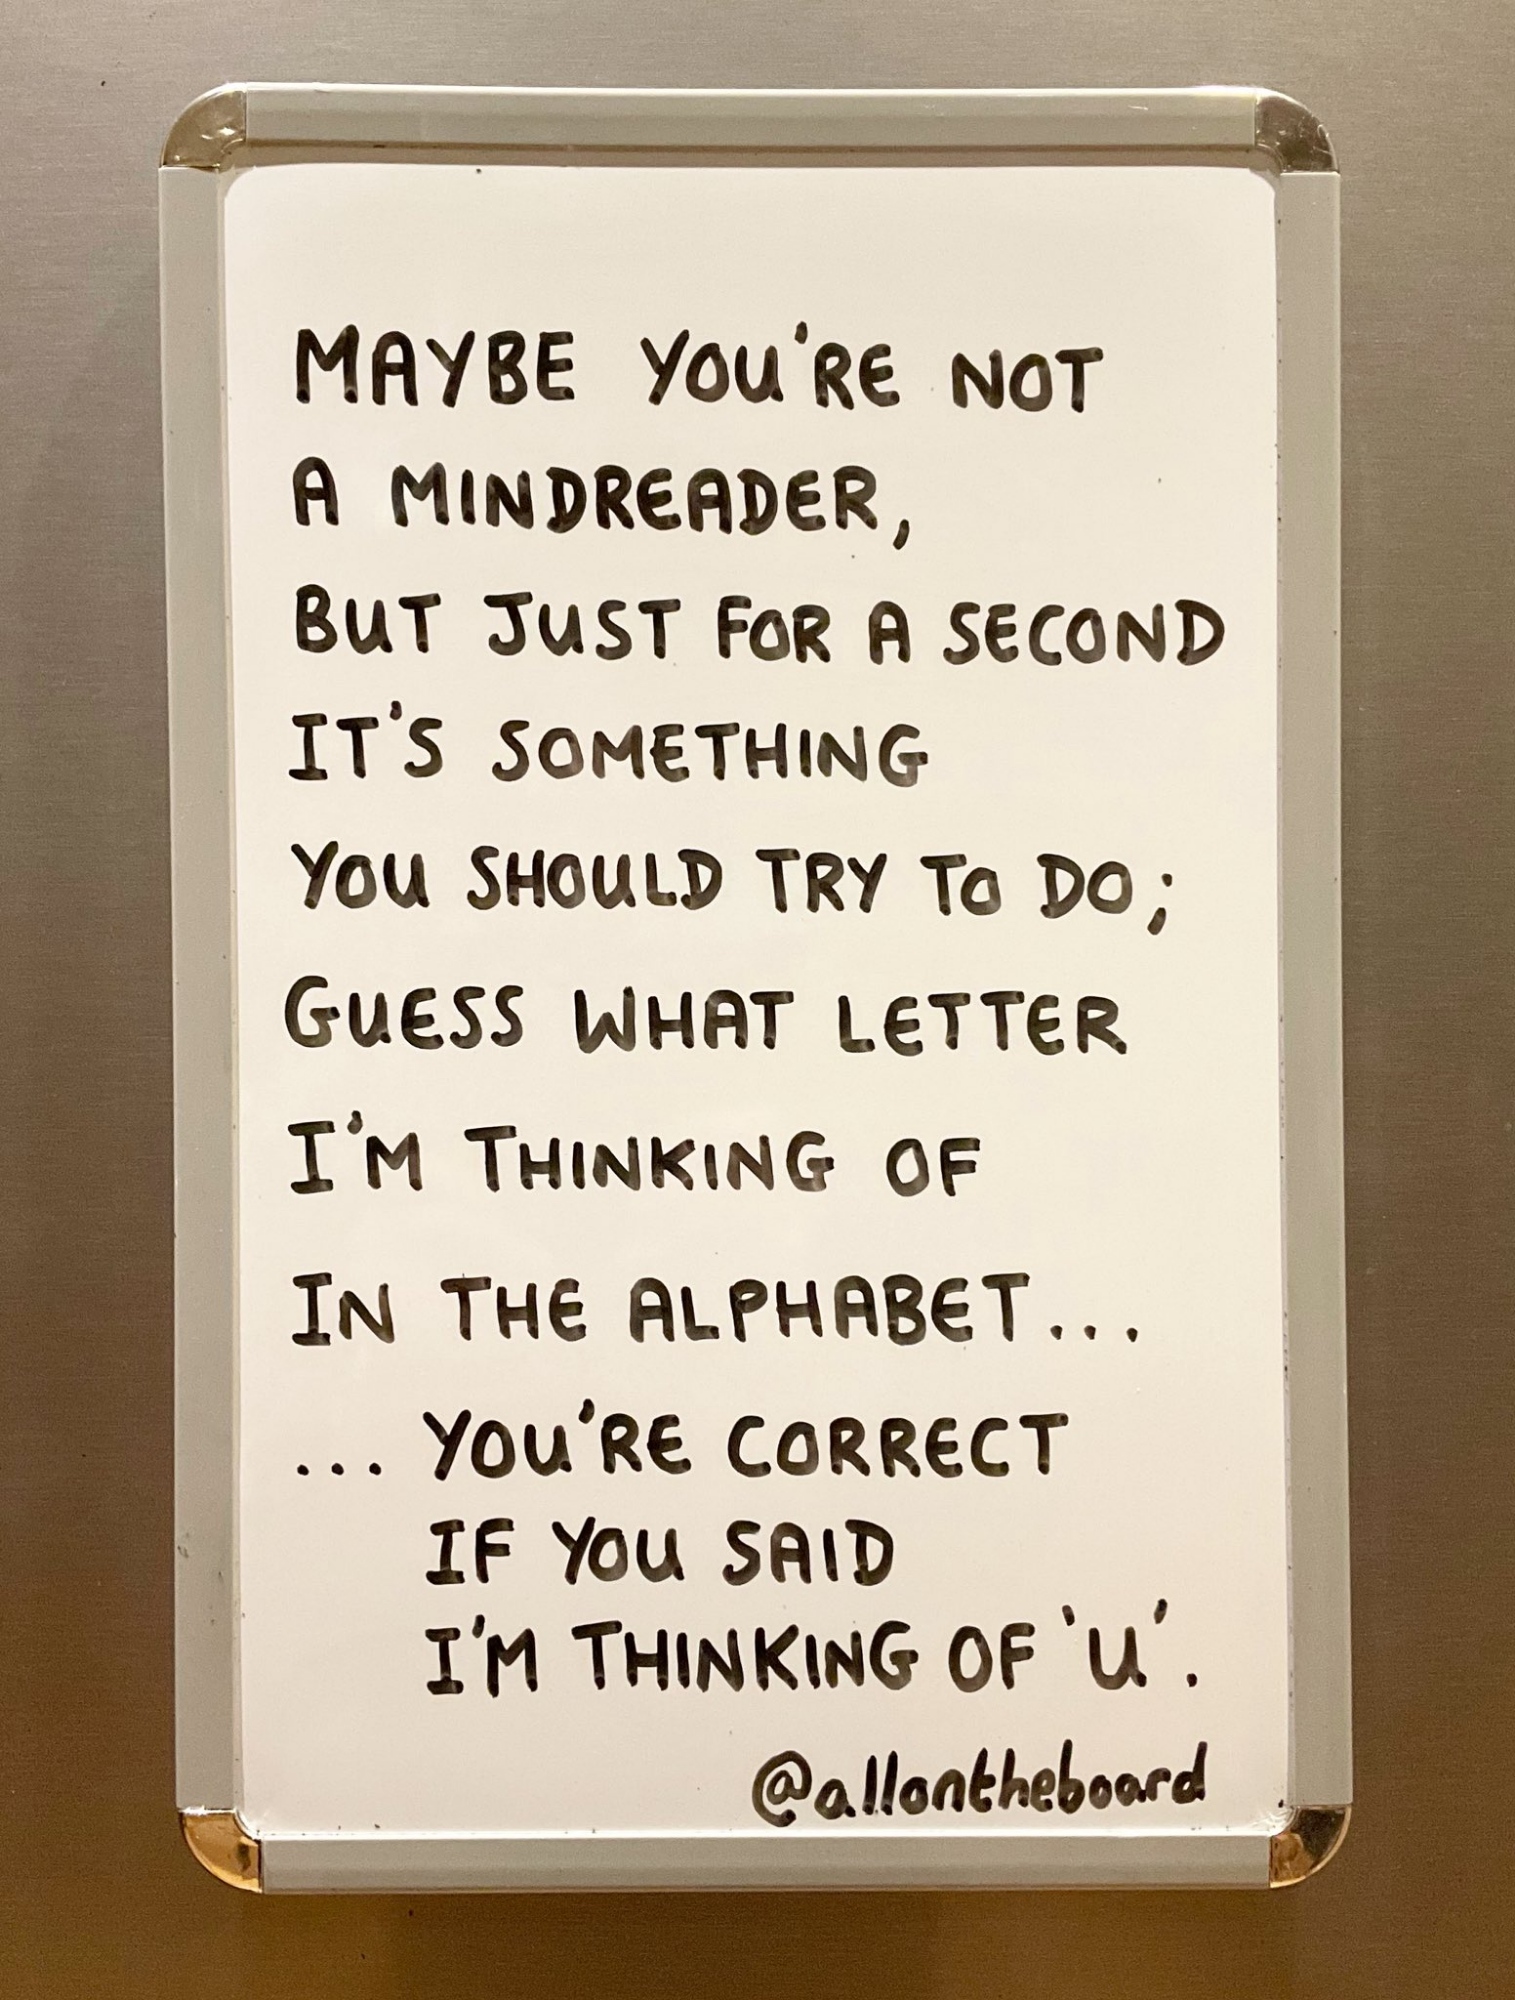 MAYBE YOU'RE NOT
A MINDREADER,
BUT JUST FOR A SECOND
IT'S SOMETHING
YOU SHOULD TRY TO DO;
GUESS WHAT LETTER
I'M THINKING OF
IN THE ALPHABET...
... YOU'RE CORRECT
IF YOU SAID
I'M THINKING OF 'U'.
@allontheboard